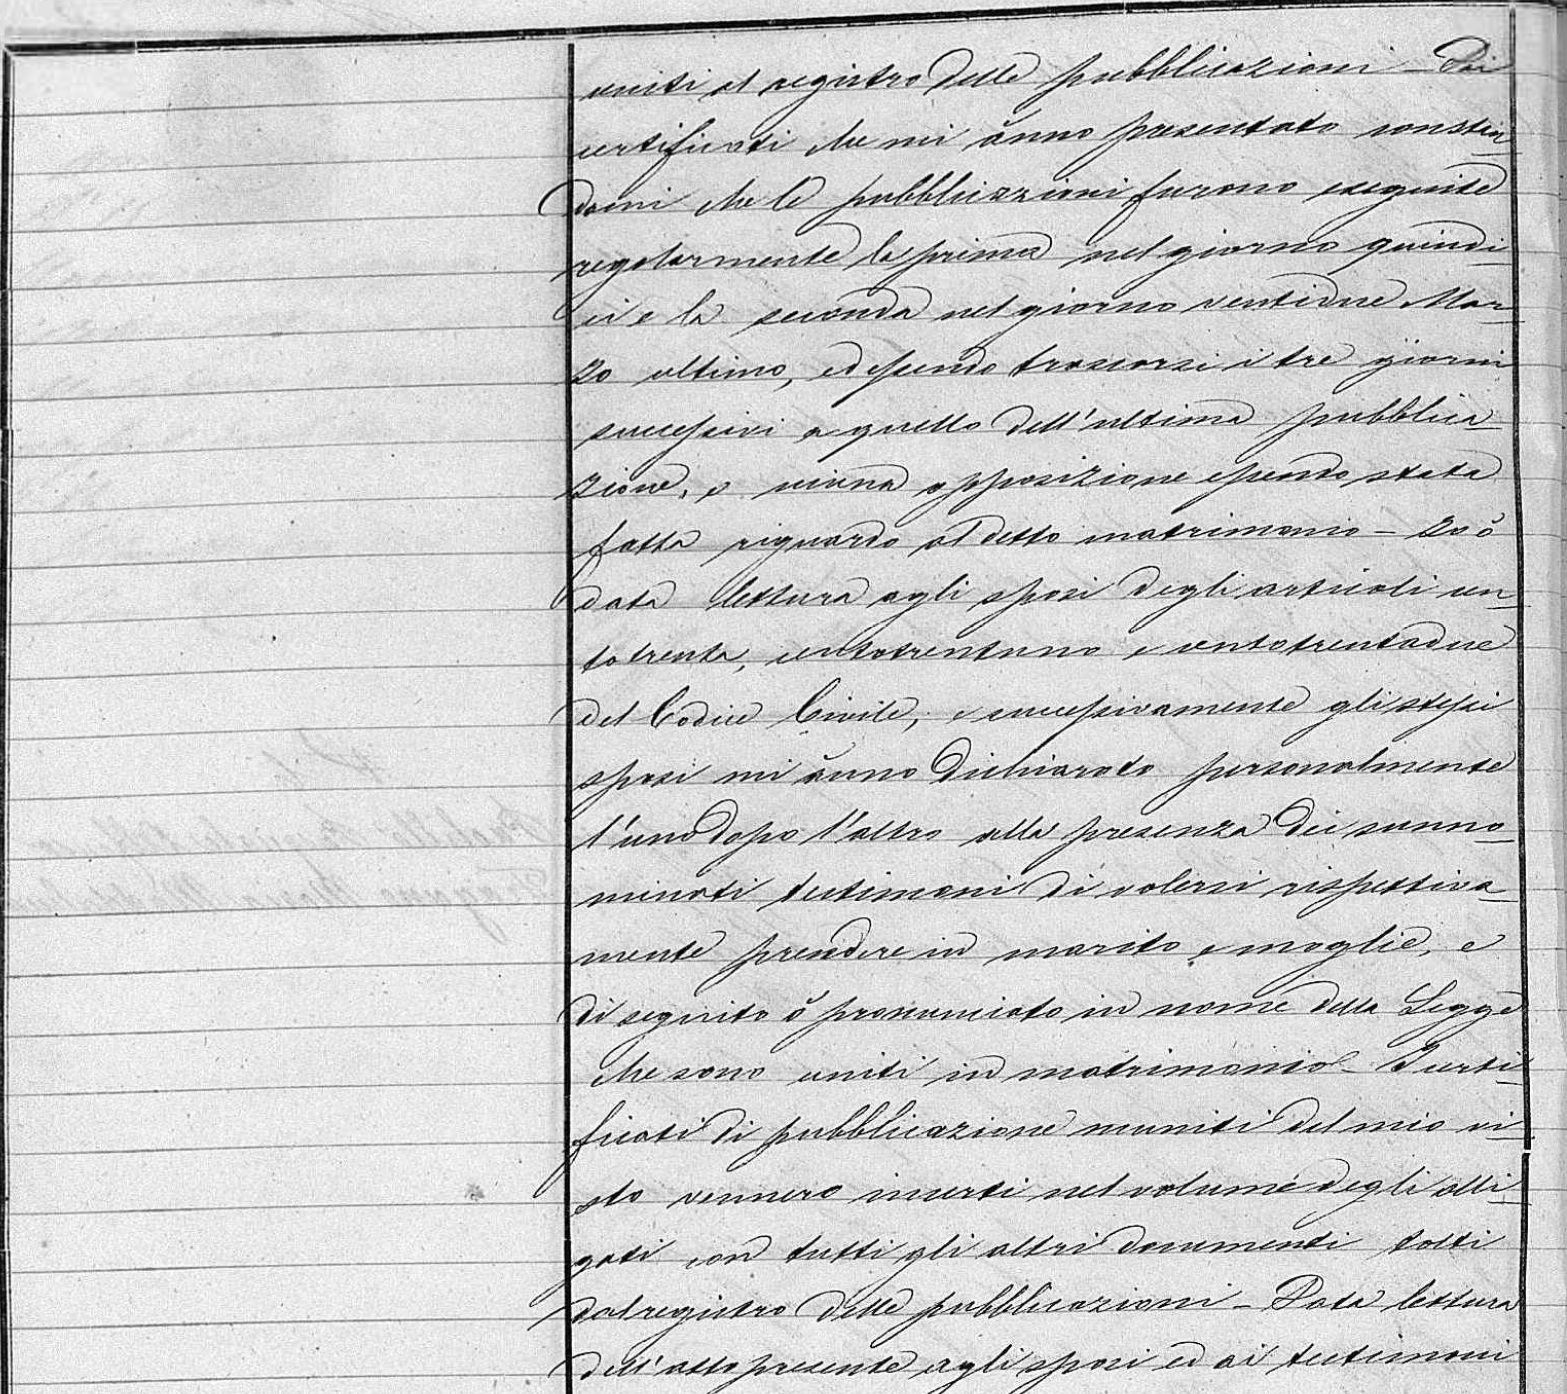 uniti al registro delle pubblicazioni – Dai
certificati che mi ànno presentato constan
domi che le pubblicazioni furono eseguite
regolarmente la prima nel giorno quindi
ci e la seconda nel giorno ventidue Mar
zo ultimo, ed essendo trascorsi i tre giorni
successivi a quello dell'ultima pubblica
zione, e niuna opposizione essendo stata
fatta riguardo al detto matrimonio – Io ò
data lettura agli sposi degli articoli cen
totrenta, centotrentuno e centotrentadue
del Codice Civile, e successivamente gli stessi
sposi mi ànno dichiarato personalmente
l'uno dopo l'altro alla presenza dei sunno
minati testimoni di volersi rispettiva
mente prendere in marito e moglie, e
di seguito ò pronunciato in nome della Legge
che sono uniti in matrimonio – I certi
ficati di pubblicazione muniti del mio vi
sto vennero inserti nel volume degli alli
gati con tutti gli altri documenti tolti
dal registro delle pubblicazioni – Data lettura
dell'atto presente agli sposi ed ai testimoni